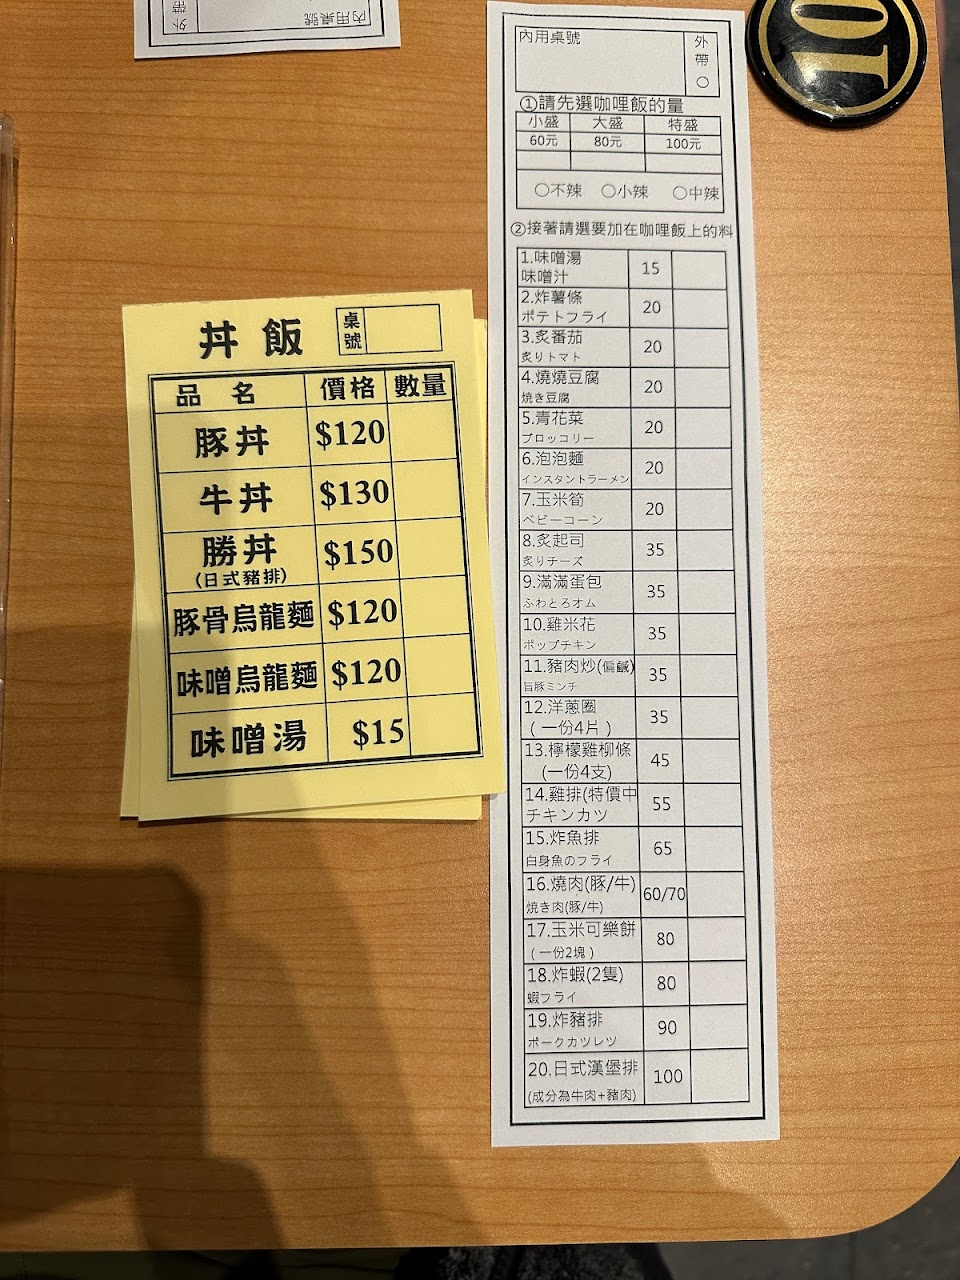 外
帶
內用桌號
10
內用桌號
外
帶
①請先選咖哩飯的量
小盛 大盛 特盛
60元 80元 100元
○不辣 ○小辣 ○中辣
②接著請選要加在咖哩飯上的料
1.味噌湯 15
味噌汁
2.炸薯條 20
ポテトフライ
3.炙番茄 20
炙りトマト
4.燒燒豆腐 20
焼き豆腐
5.青花菜 20
ブロッコリー
6.泡泡麵 20
インスタントラーメン
7.玉米筍 20
ベビーコーン
8.炙起司 35
炙りチーズ
9.滿滿蛋包 35
ふわとろオム
10.雞米花 35
ポップチキン
11.豬肉炒(偏鹹) 35
旨豚ミンチ
12.洋蔥圈 35
(一份4片)
13.檸檬雞柳條 45
(一份4支)
14.雞排(特價中 55
チキンカツ
15.炸魚排 65
白身魚のフライ
16.燒肉(豚/牛) 60/70
焼き肉(豚/牛)
17.玉米可樂餅 80
(一份2塊)
18.炸蝦(2隻) 80
蝦フライ
19.炸豬排 90
ポークカツレツ
20.日式漢堡排 100
(成分為牛肉+豬肉)
丼飯
桌
號
品名 價格 數量
豚丼 $120
牛丼 $130
勝丼 $150
(日式豬排)
豚骨烏龍麵 $120
味噌烏龍麵 $120
味噌湯 $15